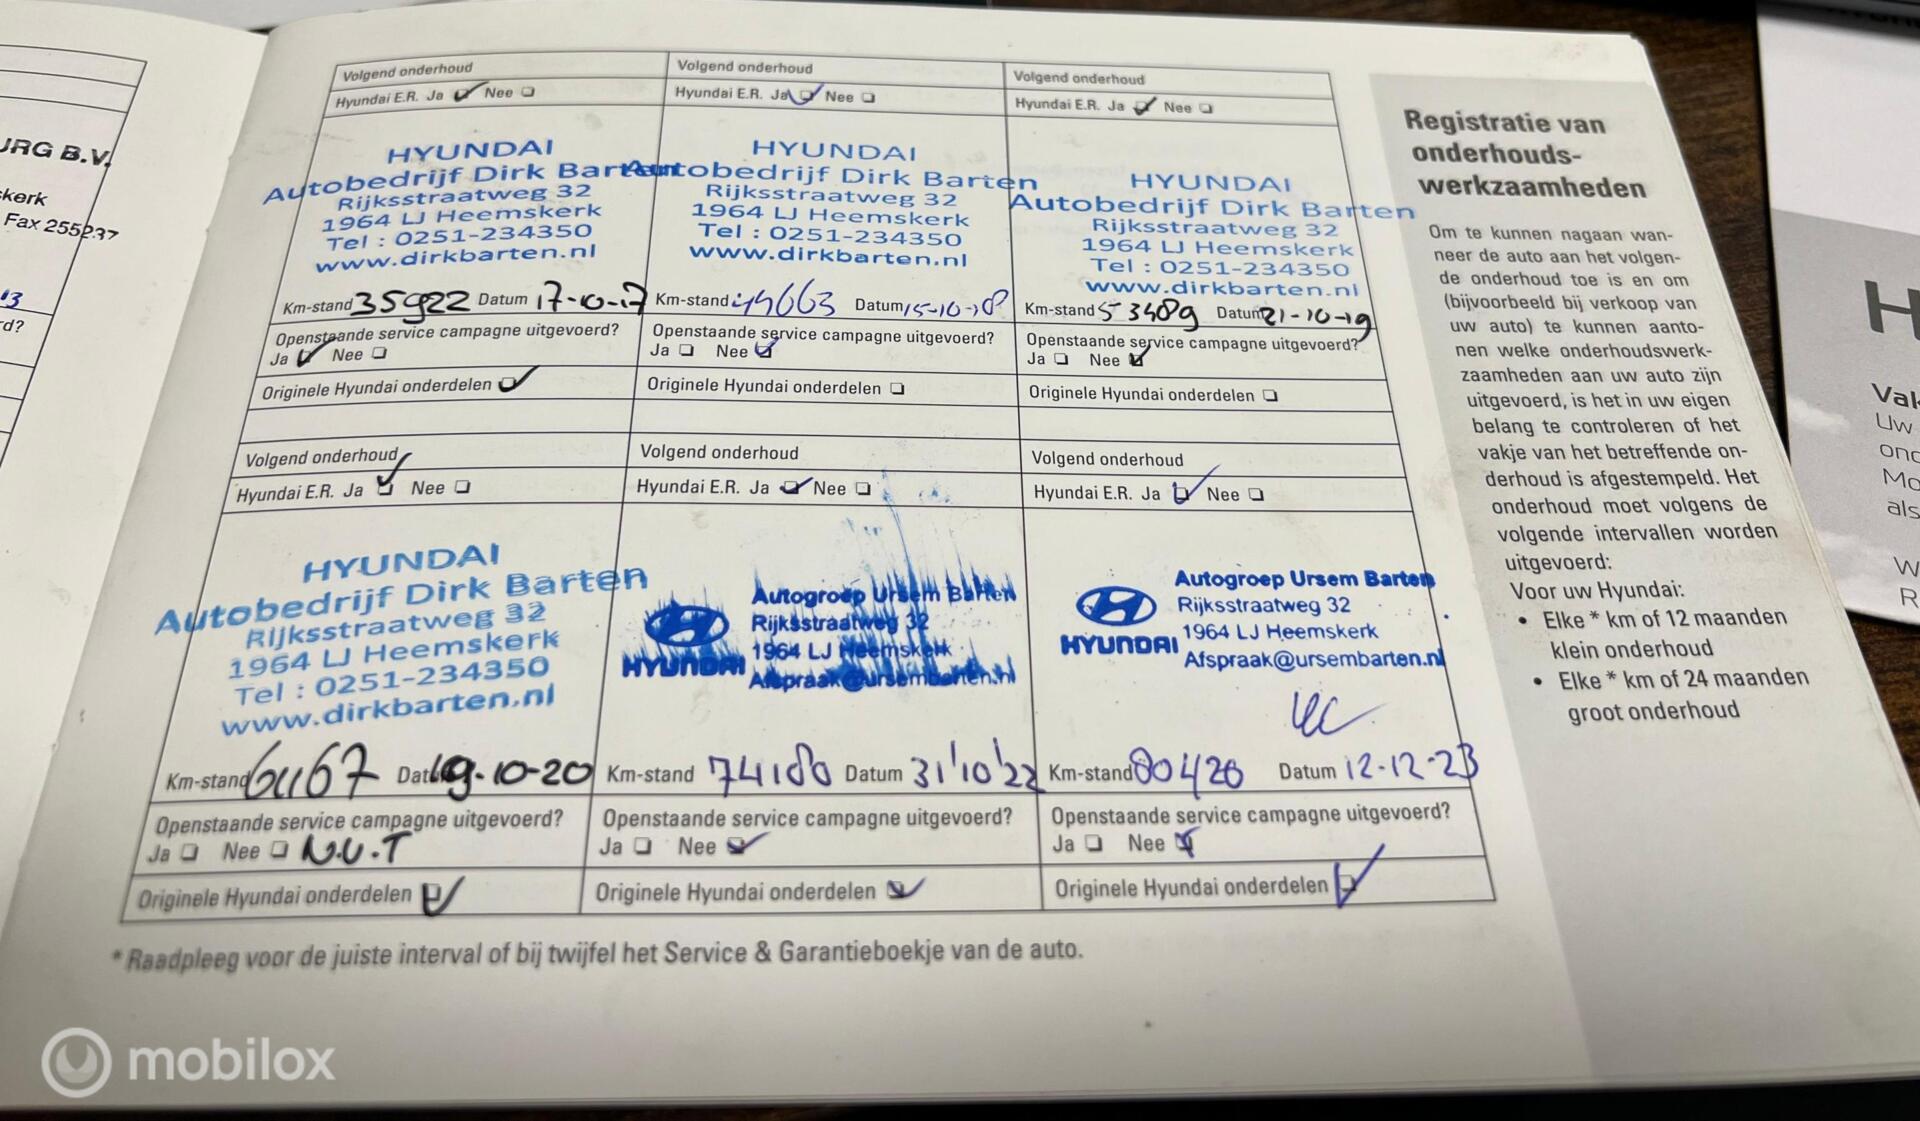 Volgend onderhoud
Hyundai E.R. Ja Nee
HYUNDAI
Autobedrijf Dirk Barten
Rijksstraatweg 32
1964 LJ Heemskerk
Tel : 0251-234350
www.dirkbarten.nl
Km-stand 35922 Datum 17-10-17
Openstaande service campagne uitgevoerd?
Ja Nee
Originele Hyundai onderdelen
Volgend onderhoud
Hyundai E.R. Ja Nee
HYUNDAI
Autobedrijf Dirk Barten
Rijksstraatweg 32
1964 LJ Heemskerk
Tel : 0251-234350
www.dirkbarten.nl
Km-stand 44663 Datum 15-10-18
Openstaande service campagne uitgevoerd?
Ja Nee
Originele Hyundai onderdelen
Volgend onderhoud
Hyundai E.R. Ja Nee
HYUNDAI
Autobedrijf Dirk Barten
Rijksstraatweg 32
1964 LJ Heemskerk
Tel : 0251-234350
www.dirkbarten.nl
Km-stand 53489 Datum 21-10-19
Openstaande service campagne uitgevoerd?
Ja Nee
Originele Hyundai onderdelen
Volgend onderhoud
Hyundai E.R. Ja Nee
HYUNDAI
Autobedrijf Dirk Barten
Rijksstraatweg 32
1964 LJ Heemskerk
Tel : 0251-234350
www.dirkbarten.nl
Km-stand Datum 19-10-20
Openstaande service campagne uitgevoerd?
Ja Nee N.V.T
Originele Hyundai onderdelen
Volgend onderhoud
Hyundai E.R. Ja Nee
HYUNDAI
Autogroep Ursem Barten
Rijksstraatweg 32
1964 LJ Heemskerk
Afspraak@ursembarten.nl
Km-stand 74180 Datum 31'10'22
Openstaande service campagne uitgevoerd?
Ja Nee
Originele Hyundai onderdelen
Volgend onderhoud
Hyundai E.R. Ja Nee
HYUNDAI
Autogroep Ursem Barten
Rijksstraatweg 32
1964 LJ Heemskerk
Afspraak@ursembarten.nl
Km-stand 80426 Datum 12-12-23
Openstaande service campagne uitgevoerd?
Ja Nee
Originele Hyundai onderdelen
* Raadpleeg voor de juiste interval of bij twijfel het Service & Garantieboekje van de auto.
Registratie van
onderhouds-
werkzaamheden
Om te kunnen nagaan wan-
neer de auto aan het volgen-
de onderhoud toe is en om
(bijvoorbeeld bij verkoop van
uw auto) te kunnen aanto-
nen welke onderhoudswerk-
zaamheden aan uw auto zijn
uitgevoerd, is het in uw eigen
belang te controleren of het
vakje van het betreffende on-
derhoud is afgestempeld. Het
onderhoud moet volgens de
volgende intervallen worden
uitgevoerd:
Voor uw Hyundai:
• Elke * km of 12 maanden
klein onderhoud
• Elke * km of 24 maanden
groot onderhoud
URG B.V.
skerk
Fax 255237
Uw
mobilox